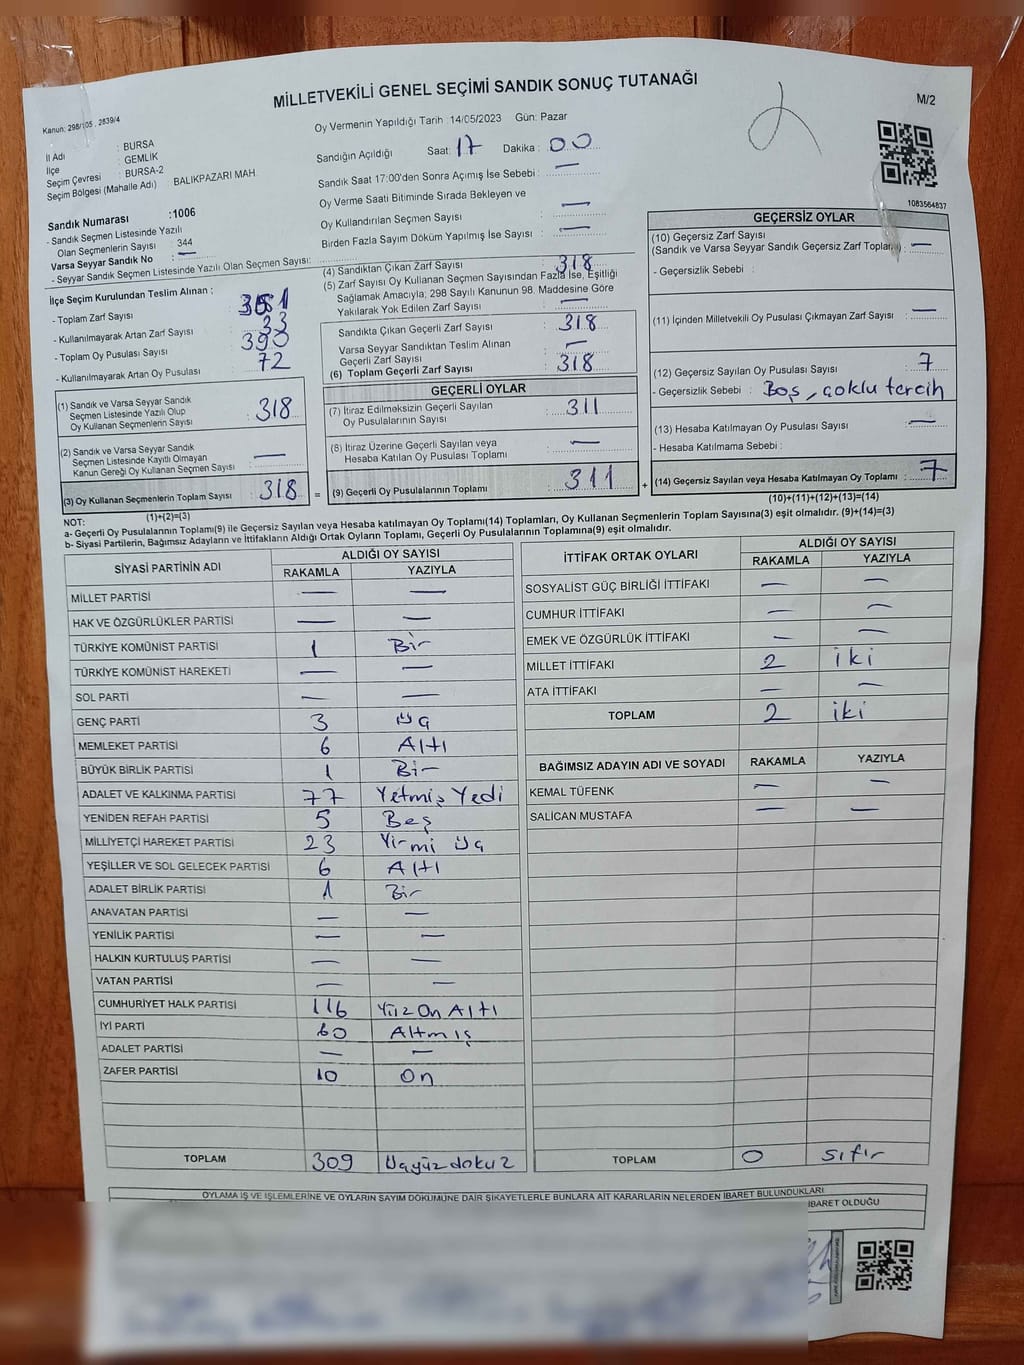 MİLLETVEKİLİ GENEL SEÇİMİ SANDIK SONUÇ TUTANAĞI
M/2
Kanun: 298/105 , 2839/4
Oy Vermenin Yapıldığı Tarih :14/05/2023 Gün: Pazar
İl Adı : BURSA
İlçe : GEMLİK
Seçim Çevresi : BURSA-2
Seçim Bölgesi (Mahalle Adı) BALIKPAZARI MAH.
Sandığın Açıldığı Saat: 17 Dakika : 00
Sandık Saat 17:00'den Sonra Açımış İse Sebebi : —
Oy Verme Saati Bitiminde Sırada Bekleyen ve
Oy Kullandırılan Seçmen Sayısı : —
Birden Fazla Sayım Döküm Yapılmış İse Sayısı : —
1083564837
Sandık Numarası :1006
- Sandık Seçmen Listesinde Yazılı
Olan Seçmenlerin Sayısı : 344
Varsa Seyyar Sandık No : —
- Seyyar Sandık Seçmen Listesinde Yazılı Olan Seçmen Sayısı:
İlçe Seçim Kurulundan Teslim Alınan :
- Toplam Zarf Sayısı : 351
- Kullanılmayarak Artan Zarf Sayısı : 33
- Toplam Oy Pusulası Sayısı : 390
- Kullanılmayarak Artan Oy Pusulası : 72
(1) Sandık ve Varsa Seyyar Sandık
Seçmen Listesinde Yazılı Olup
Oy Kullanan Seçmenlerin Sayısı : 318
(2) Sandık ve Varsa Seyyar Sandık
Seçmen Listesinde Kayıtlı Olmayan
Kanun Gereği Oy Kullanan Seçmen Sayısı : —
(3) Oy Kullanan Seçmenlerin Toplam Sayısı : 318
(1)+(2)=(3)
(4) Sandıktan Çıkan Zarf Sayısı : 318
(5) Zarf Sayısı Oy Kullanan Seçmen Sayısından Fazla İse, Eşitliği
Sağlamak Amacıyla, 298 Sayılı Kanunun 98. Maddesine Göre
Yakılarak Yok Edilen Zarf Sayısı : —
Sandıkta Çıkan Geçerli Zarf Sayısı : 318
Varsa Seyyar Sandıktan Teslim Alınan
Geçerli Zarf Sayısı : —
(6) Toplam Geçerli Zarf Sayısı : 318
GEÇERLİ OYLAR
(7) İtiraz Edilmeksizin Geçerli Sayılan
Oy Pusulalarının Sayısı : 311
(8) İtiraz Üzerine Geçerli Sayılan veya
Hesaba Katılan Oy Pusulası Toplamı : —
= (9) Geçerli Oy Pusulalarının Toplamı : 311 +
GEÇERSİZ OYLAR
(10) Geçersiz Zarf Sayısı
(Sandık ve Varsa Seyyar Sandık Geçersiz Zarf Toplamı) : —
- Geçersizlik Sebebi :
(11) İçinden Milletvekili Oy Pusulası Çıkmayan Zarf Sayısı : —
(12) Geçersiz Sayılan Oy Pusulası Sayısı : 7
- Geçersizlik Sebebi : Boş, çoklu tercih
(13) Hesaba Katılmayan Oy Pusulası Sayısı : —
- Hesaba Katılmama Sebebi :
(14) Geçersiz Sayılan veya Hesaba Katılmayan Oy Toplamı : 7
(10)+(11)+(12)+(13)=(14)
NOT:
a- Geçerli Oy Pusulalarının Toplamı(9) ile Geçersiz Sayılan veya Hesaba katılmayan Oy Toplamı(14) Toplamları, Oy Kullanan Seçmenlerin Toplam Sayısına(3) eşit olmalıdır. (9)+(14)=(3)
b- Siyasi Partilerin, Bağımsız Adayların ve İttifakların Aldığı Ortak Oyların Toplamı, Geçerli Oy Pusulalarının Toplamına(9) eşit olmalıdır.
SİYASİ PARTİNİN ADI ALDIĞI OY SAYISI
RAKAMLA YAZIYLA
MİLLET PARTİSİ — —
HAK VE ÖZGÜRLÜKLER PARTİSİ — —
TÜRKİYE KOMÜNİST PARTİSİ 1 Bir
TÜRKİYE KOMÜNİST HAREKETİ — —
SOL PARTİ — —
GENÇ PARTİ 3 üç
MEMLEKET PARTİSİ 6 Altı
BÜYÜK BİRLİK PARTİSİ 1 Bir
ADALET VE KALKINMA PARTİSİ 77 Yetmiş Yedi
YENİDEN REFAH PARTİSİ 5 Beş
MİLLİYETÇİ HAREKET PARTİSİ 23 Yirmi üç
YEŞİLLER VE SOL GELECEK PARTİSİ 6 Altı
ADALET BİRLİK PARTİSİ 1 Bir
ANAVATAN PARTİSİ — —
YENİLİK PARTİSİ — —
HALKIN KURTULUŞ PARTİSİ — —
VATAN PARTİSİ — —
CUMHURİYET HALK PARTİSİ 116 Yüz On Altı
İYİ PARTİ 60 Altmış
ADALET PARTİSİ — —
ZAFER PARTİSİ 10 On
TOPLAM 309 Üçyüz dokuz
İTTİFAK ORTAK OYLARI ALDIĞI OY SAYISI
RAKAMLA YAZIYLA
SOSYALİST GÜÇ BİRLİĞİ İTTİFAKI — —
CUMHUR İTTİFAKI — —
EMEK VE ÖZGÜRLÜK İTTİFAKI — —
MİLLET İTTİFAKI 2 iki
ATA İTTİFAKI — —
TOPLAM 2 iki
BAĞIMSIZ ADAYIN ADI VE SOYADI RAKAMLA YAZIYLA
KEMAL TÜFENK — —
SALİCAN MUSTAFA — —
TOPLAM 0 sıfır
OYLAMA İŞ VE İŞLEMLERİNE VE OYLARIN SAYIM DÖKÜMÜNE DAİR ŞİKAYETLERLE BUNLARA AİT KARARLARIN NELERDEN İBARET BULUNDUKLARI
İBARET OLDUĞU